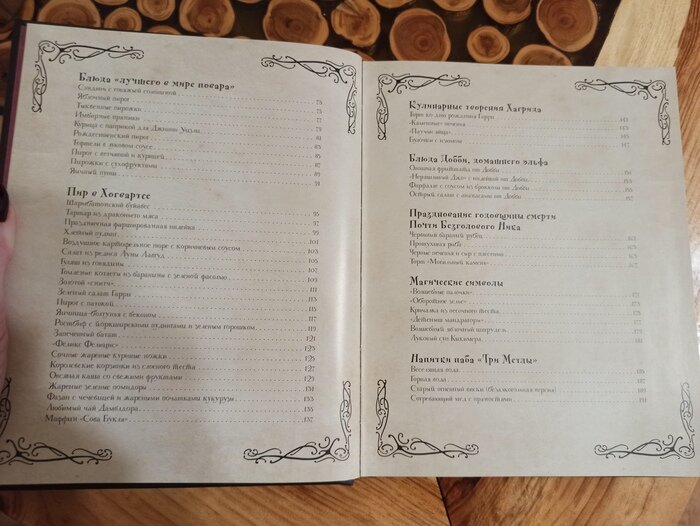 Блюда «лучшего в мире повара»
Сэндвич с говяжей солониной 73
Яблочный пирог 75
Тыквенные пирожки 77
Имбирные пряники 79
Курица с паприкой для Джинни Уизли 81
Рождественский пирог 83
Тортелли в соусе 85
Пирог с ветчиной и курицей 87
Пирожки с сухофруктами 89
Яичный пунш 91
Пир в Хогвартсе
Шармбатонский буйабес 95
Тартар из драконьего мяса 97
Праздничная фаршированная индейка 99
Хлебный пудинг 101
Воздушное картофельное пюре с коричневым соусом 103
Салат из редиса Луны Лавгуд 105
Гуляш из говядины 107
Томленые котлеты из баранины с зеленой фасолью 109
Золотой «снитч» 111
Зеленый салат Гарри 113
Пирог с патокой 115
Яичница-болтунья с беконом 117
Ростбиф с йоркширскими пудингами и зеленым горошком 119
Запеченный батат 121
«Феликс Фелицис» 123
Сочные жареные куриные ножки 125
Королевские корзинки из слоеного теста 127
Овсяная каша со свежими фруктами 129
Жареные зеленые помидоры 131
Фазан с чечевицей и жареными початками кукурузы 133
Любимый чай Дамблдора 135
Маффин «Сова Букля» 137
Кулинарные творения Хагрида
Торт ко дню рождения Гарри 141
«Каменные» печенья 143
«Паучьи яйца» 145
Булочки с изюмом 147
Блюда Добби, домашнего эльфа
Овощная фриттата от Добби 151
«Неряшливый Джо» с индейкой от Добби 153
Фарфалле с соусом из брокколи от Добби 155
Острый салат с ананасами от Добби 157
Празднование годовщины смерти
Почти Безголового Ника
Червивый бараний рубец 161
Протухшая рыба 163
Черные печенья и сыр с плесенью 165
Торт «Могильный камень» 167
Магические символы
«Волшебные палочки» 171
«Оборотное зелье» 173
Крикалка из песочного теста 175
«Детеныши мандрагоры» 177
Волшебный яблочный штрудель 179
Луковый суп Кикимера 181
Напитки паба «Три Метлы»
Веселящая вода 185
Горная вода 187
Старый огненный виски (безалкогольная версия) 189
Согревающий мед с пряностями 191